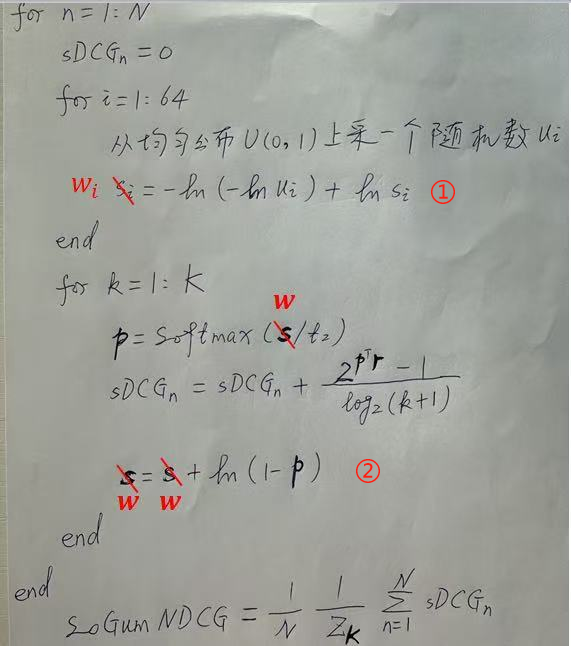 for n = 1 : N
sDCGₙ = 0
for i = 1 : 64
从均匀分布 U(0,1) 上采一个随机数 uᵢ
wᵢ sᵢ = -ln (-ln uᵢ) + ln sᵢ ①
end
for k = 1 : K
w
p = softmax (s/t₂)
sDCGₙ = sDCGₙ + (2^{pᵀr} - 1) / log₂(k+1)
s = s + ln (1-p) ②
w w
end
end
SoGumNDCG = 1/N 1/Z_K Σ_{n=1}^{N} sDCGₙ